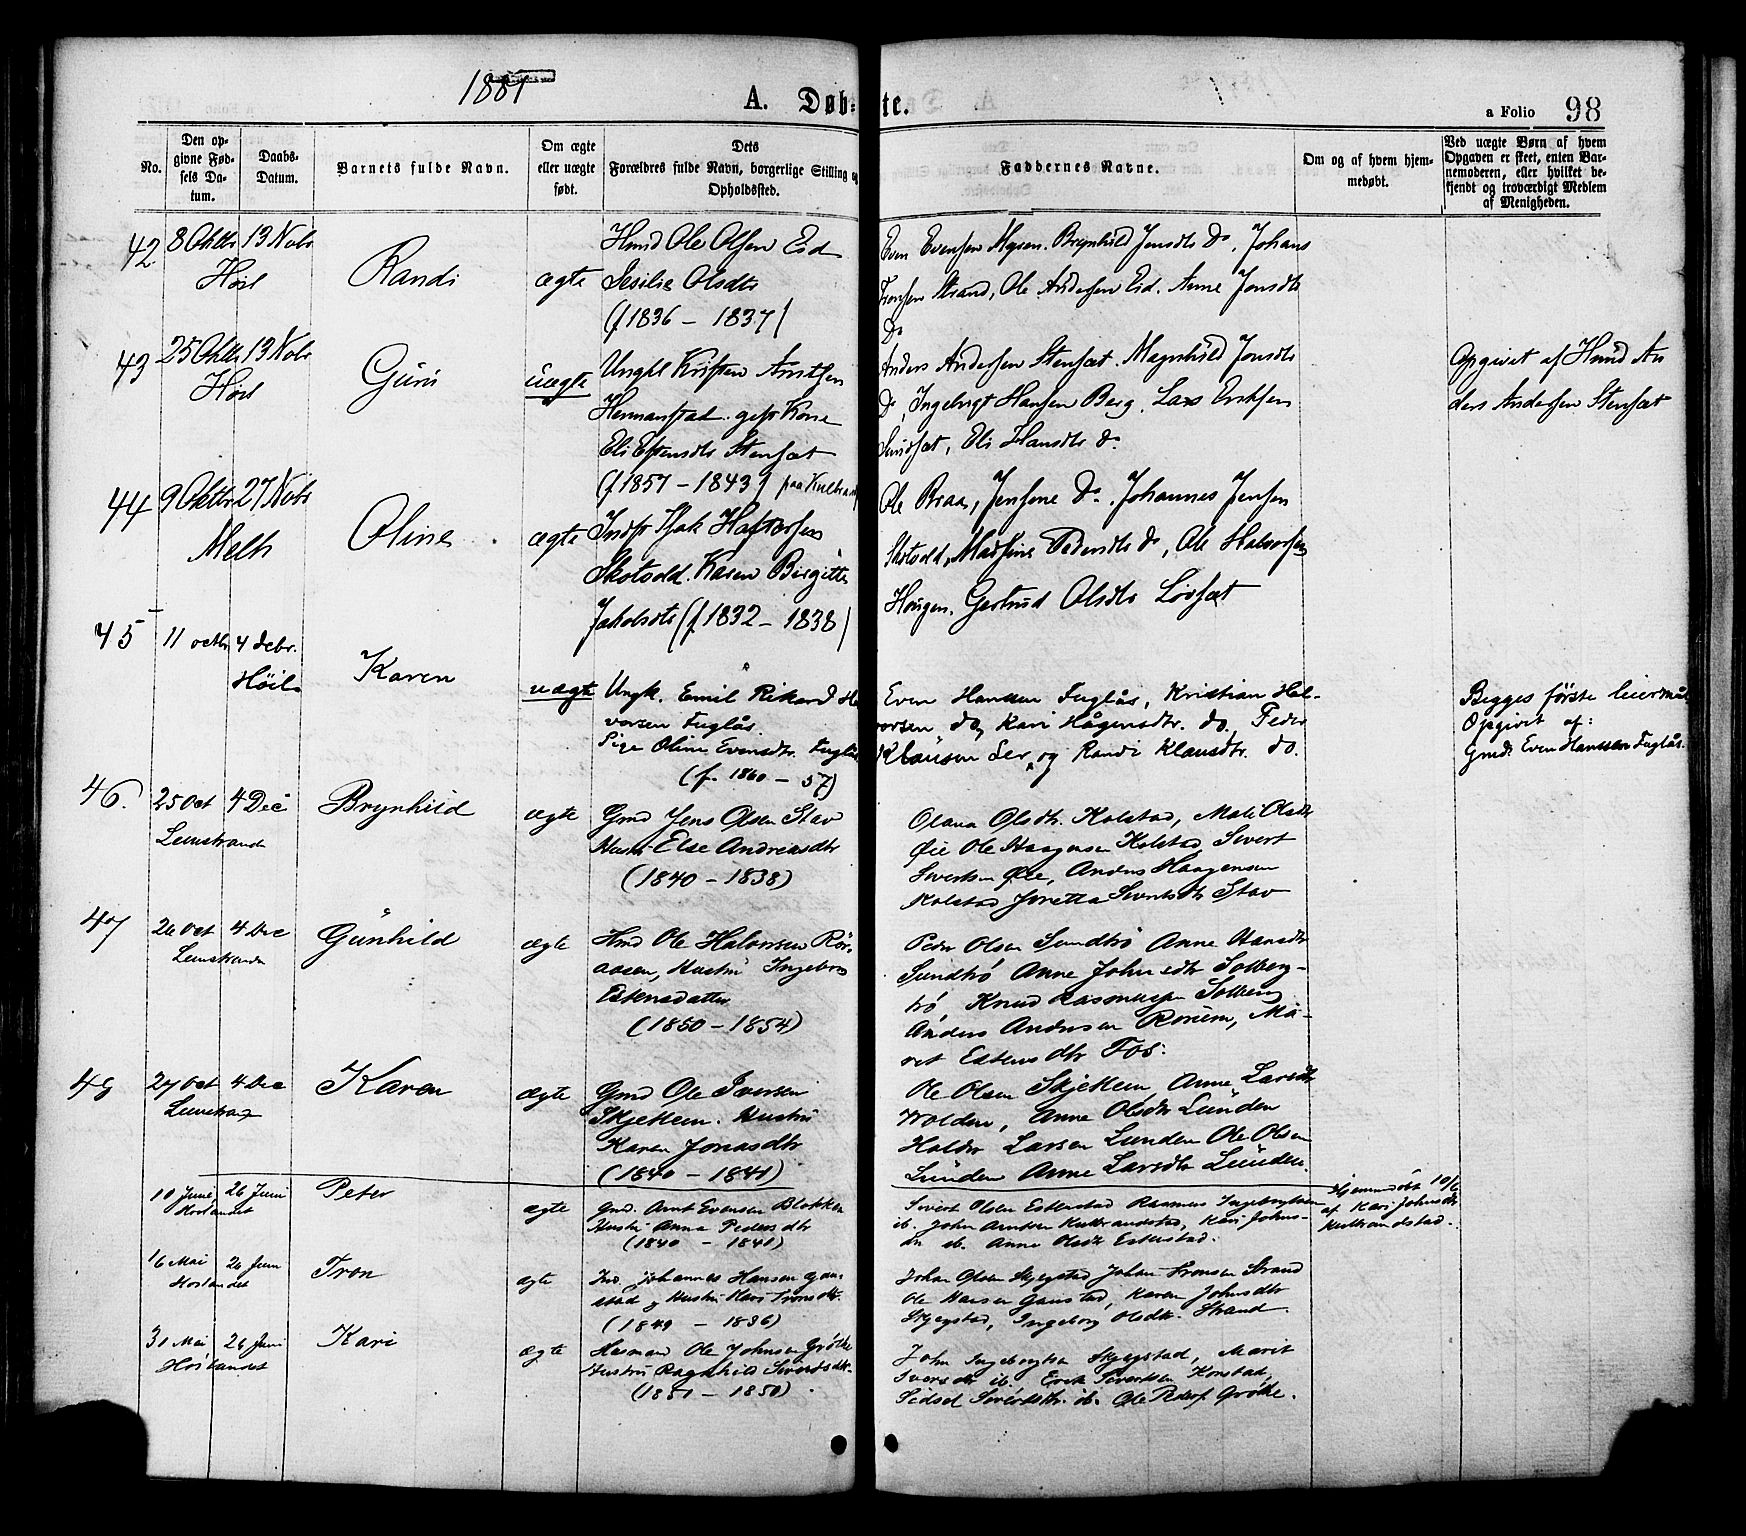 1881
A. Døb-
te.
a Folio 98
No.
Den op-
givne Fød-
sels Da-
tum.
Daabs-
Datum.
Barnets fulde Navn.
Om ægte
eller uægte
født.
Dets
Forældres fulde Navn, borgerlige Stilling og
Opholdssted.
Faddernes Navne.
Om og af hvem hjem-
medøbt.
Ved uægte Børn af hvem
Opgaven er skeet, enten Bar-
nemoderen, eller hvilket be-
kjendt og troværdigt Medlem
af Menigheden.
42 8 Oktbr 13 Nobr
Høil
Randi
ægte
Hmd Ole Olsen Eid
Sesilie Olsdtr
(f 1836 – 1837)
Even Evensen Mosen. Brynhild Jensdtr Do, Johans
Tronsen Strand, Ole Andersen Eid. Anne Jonsdtr
Do
43 25 Oktbr 13 Nobr
Høil
Guri
uægte
Ungkl Kristen Arntsen
Hermanstad. gift Kone
Eli Estensdtr Stensæt
(f 1857 – 1843)
Anders Andersen Stensæt. Magnhild Jonsdtr
Do, Ingebrigt Hansen Berg. Lars Eriksen
Sundsæt, Eli Hansdtr Do
Opgivet af Hmd An
ders Andersen Stensæt
44 9 Oktbr 27 Nobr
Melh
Oline
ægte
Indst Isak Haftorsen
Skotvold. Karen Birgitte
Jakobsdtr (f 1832 – 1838)
Ole Braa, Jensine Do. Johannes Jensen
Skotvold, Madsine Pedersdtr Do, Ole Halvorsen
Haugen. Gertrud Olsdtr Løvset
45 11 octbr. 4 debr.
Høil.
Karen
uægte
Ungk. Emil Rikard Ha
vorsen Fuglås.
Pige Oline Evensdtr. Fuglås
(f. 1860 – 57)
Even Hanssen Fuglås, Kristian Hal-
vorsen do, Kari Hågensdtr. do. Peder
Klausen Ler, og Randi Klausdtr. do.
Begges første leiermål
Opgivet af:
Gmd. Even Hanssen Fuglås.
46. 25 Oct 4 Dec
Leinstrand
Brynhild
ægte
Gmd Jens Olsen Stav
Hustru Else Andreasdtr
(1840 – 1838)
Olava Olsdtr. Kolstad, Mali Olsdtr
Øie Ole Haagensen Kolstad, Sivert
Sivertsen Øie, Anders Haagensen
Kolstad Joretta Sivertsdtr Stav
47 26 Oct 4 Dec
Leinstranden
Gunhild
ægte
Hmd Ole Halvorsen Rør-
aasen, Hustru Ingebor
Estensdatter
(1850 – 1854)
Peder Olsen Sundtrø Anne Hansdtr
Sundtrø Anne Johnsdtr Solberg-
trø, Knud Rasmussen Solberg
Anders Andersen Rorum, Ma-
rit Estensdtr Fos.
48 27 Oct 4 Dec
Leinstrand
Karen
ægte
Gmd Ole Iversen
Skjetlein. Hustru
Karen Jonasdtr
(1840 – 1841)
Ole Olsen Skjetlein, Anne Larsdtr
Wolden, Anne Olsdtr Lunden
Haldor Larsen Lunden Ole Olsen
Lunden Anne Larsdtr Lunden.
10 Juni 26 Juni
Horlandet
Peter
ægte
Gmd. Arnt Evensen Blokken
Hustru Anna Pedersdtr
(1840 – 1841)
Sivert Olsen Estenstad Rasmus Ingebrigtsen
ib. John Arntsen Kultrandstad, Kari Johns-
dtr ib. Anne Olsdtr Estenstad.
Hjemmedøbt 10/6
af Kari Johnsdtr
Kultrandstad.
16 Mai 26 Juni
Horlandet
Tron
ægte
Ind. Johannes Hansen Gau-
stad og Hustru Kari Tronsdtr.
(1849 – 1836)
Johan Olsen Skjegstad Johan Tronsen Strand
Ole Hansen Gaustad, Karen Johnsdtr
Skjegstad, Ingeborg Olsdtr. Strand.
31 Mai 26 Juni
Horlandet
Kari
ægte
Husmand Ole Johnsen Grøtte
Hustru Ragnhild Sivertsdtr.
(1851 – 1850)
John Ingebrigtsen Skjegstad, Marit
Iversdtr ib. Erik Sivertsen Konstad,
Sidsel Sivertsdtr. ib. Ole Peders. Grøtte.